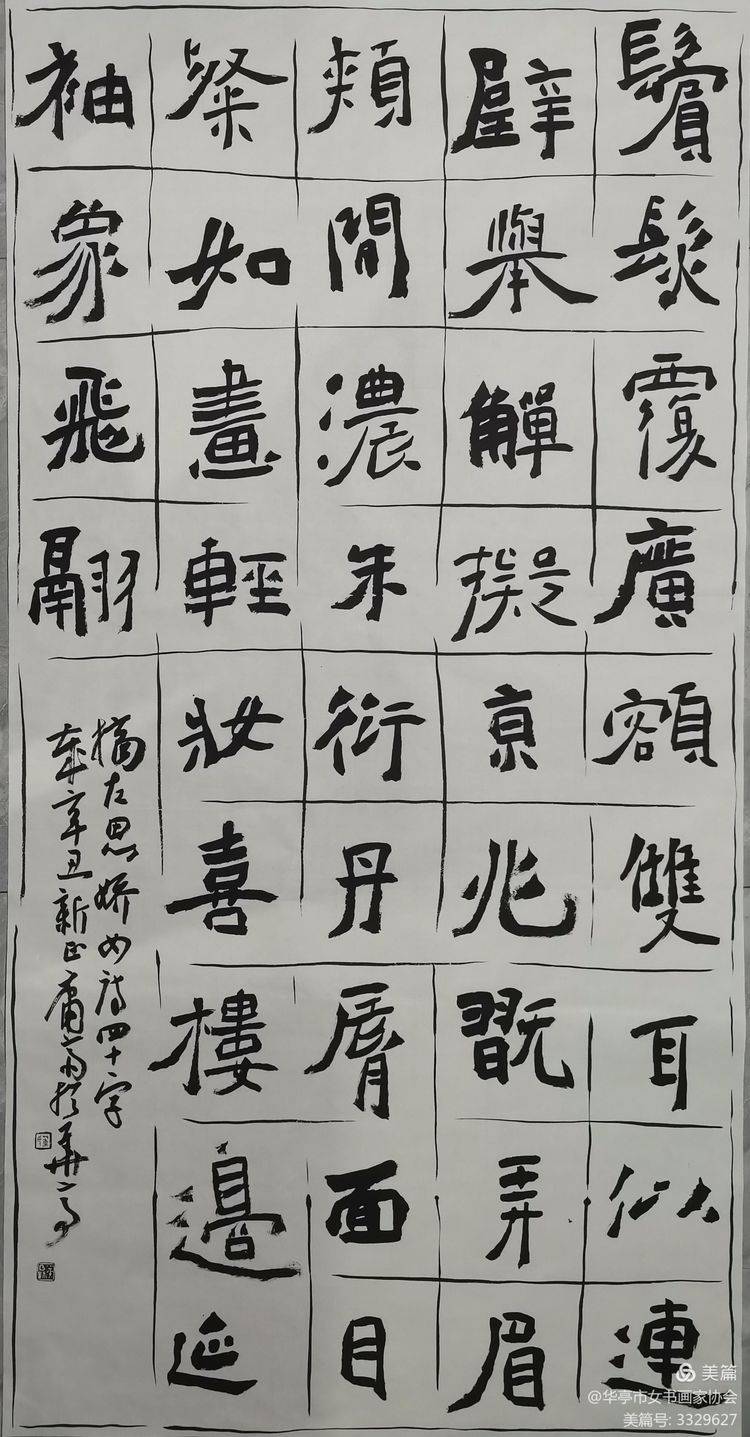 鬢髮覆廣額雙耳似連
璧舉觶擬京兆翫弄眉
頰間濃朱衍丹脣面目
粲如畫輕妝喜樓邊延
袖象飛翮
摘左思嬌女詩四十字
歲辛丑新正庸齋於華亭
美篇
@华亭市女书画家协会
美篇号: 3329627